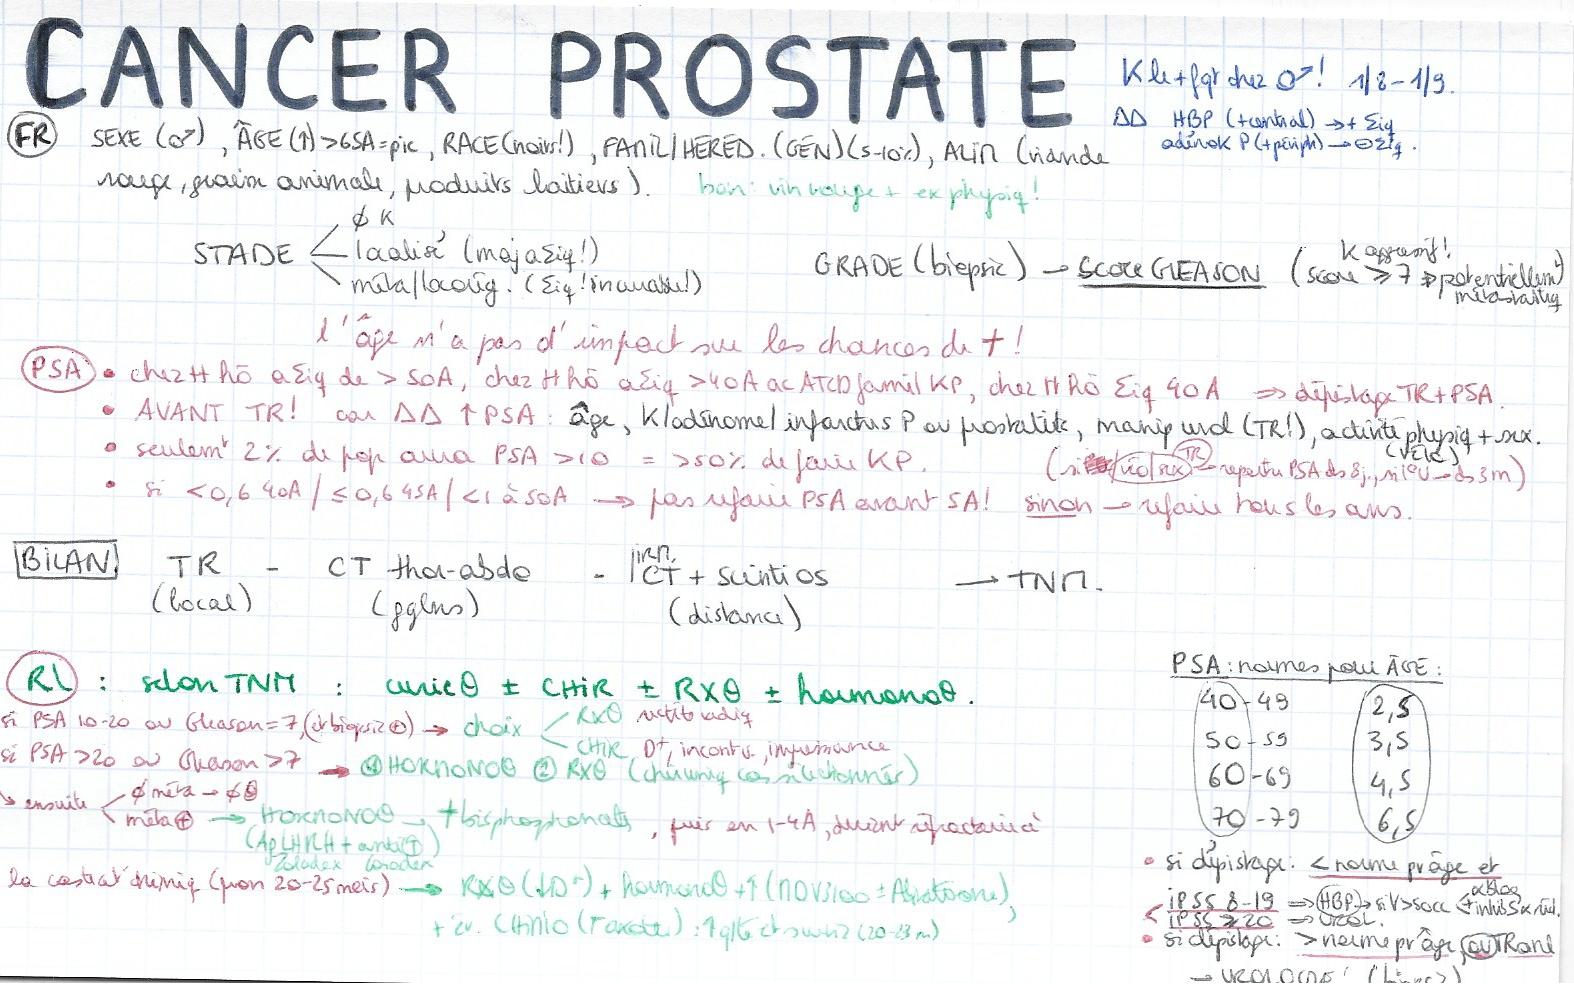 CANCER PROSTATE
K le + fqt chez ♂ ! 1/8 - 1/9.
ΔΔ HBP (+central) → + Σiq
adénoK P (+périph) → ⊖ Σiq.
FR SEXE (♂), ÂGE (↑) > 65A = pic, RACE (noirs!), FAMIL/HÉRÉD. (GÉN) (5-10%), ALIM (viande
rouge, graisse animale, produits laitiers). bon: vin rouge + ex physiq!
STADE
Ø K
localisé (maj aΣiq!)
méta/locorég. (Σiq! incurable!)
GRADE (biopsie) → SCORE GLEASON (score ≥ 7 → potentiellemt métastatiq
K agressif!
l'âge n'a pas d'impact sur les chances de †!
PSA • chez H hô aΣiq de > 50A, chez H hô aΣiq > 40A ac ATCD famil KP, chez H hô Σiq 40A ⇒ dépistage TR + PSA.
• AVANT TR! car ΔΔ ↑ PSA : âge, K/adénome/infarctus P ou prostatite, manip urol (TR!), activité physiq + sex.
(VELO)
• seulemt 2% de pop aura PSA > 10 = > 50% de faire KP. (si vélo/sex TR → repeter PSA ds 8j., si I°U → ds 3m)
• si < 0,6 40A / ≤ 0,6 45A / < 1 à 50A → pas refaire PSA avant 5A! sinon → refaire tous les ans.
BILAN TR - CT thor-abdo - CT + scinti os → TNM.
IRM
(local) (gglns) (distance)
RL : selon TNM : curieθ ± CHIR ± RXθ ± hormonoθ.
si PSA 10-20 ou Gleason = 7, (et biopsie ⊕) → choix
RXθ rectite radiq
CHIR D+, incont u, impuissance
si PSA > 20 ou Gleason > 7 → ① HORMONOθ ② RXθ (chir uniq cas sélectionnés)
↘ ensuite
Ø méta → Øθ
méta ⊕ → HORMONOθ + bisphosphonates, puis en 1-4A, devient réfractaire à
(Ag LHRH + anti ⊕)
Zoladex Casodex
la castrat° chimiq (μon 20-25 mois) → RXθ (↓D+) + hormonoθ + ↑ (NOV3100 ± Abiratérone),
+ év. CHIMIO (Taxotère) : ↑ qlté et survie (20-23 m)
PSA : normes pour ÂGE :
40-49 2,5
50-59 3,5
60-69 4,5
70-79 6,5
• si dépistage: < norme pr âge et
IPSS 8-19 ⇒ HBP → si V > 50cc + inhib 5α réd.
α bloq
IPSS ≥ 20 ⇒ UROL.
• si dépistage: > norme pr âge, ou TR anl
→ UROLOGUE!